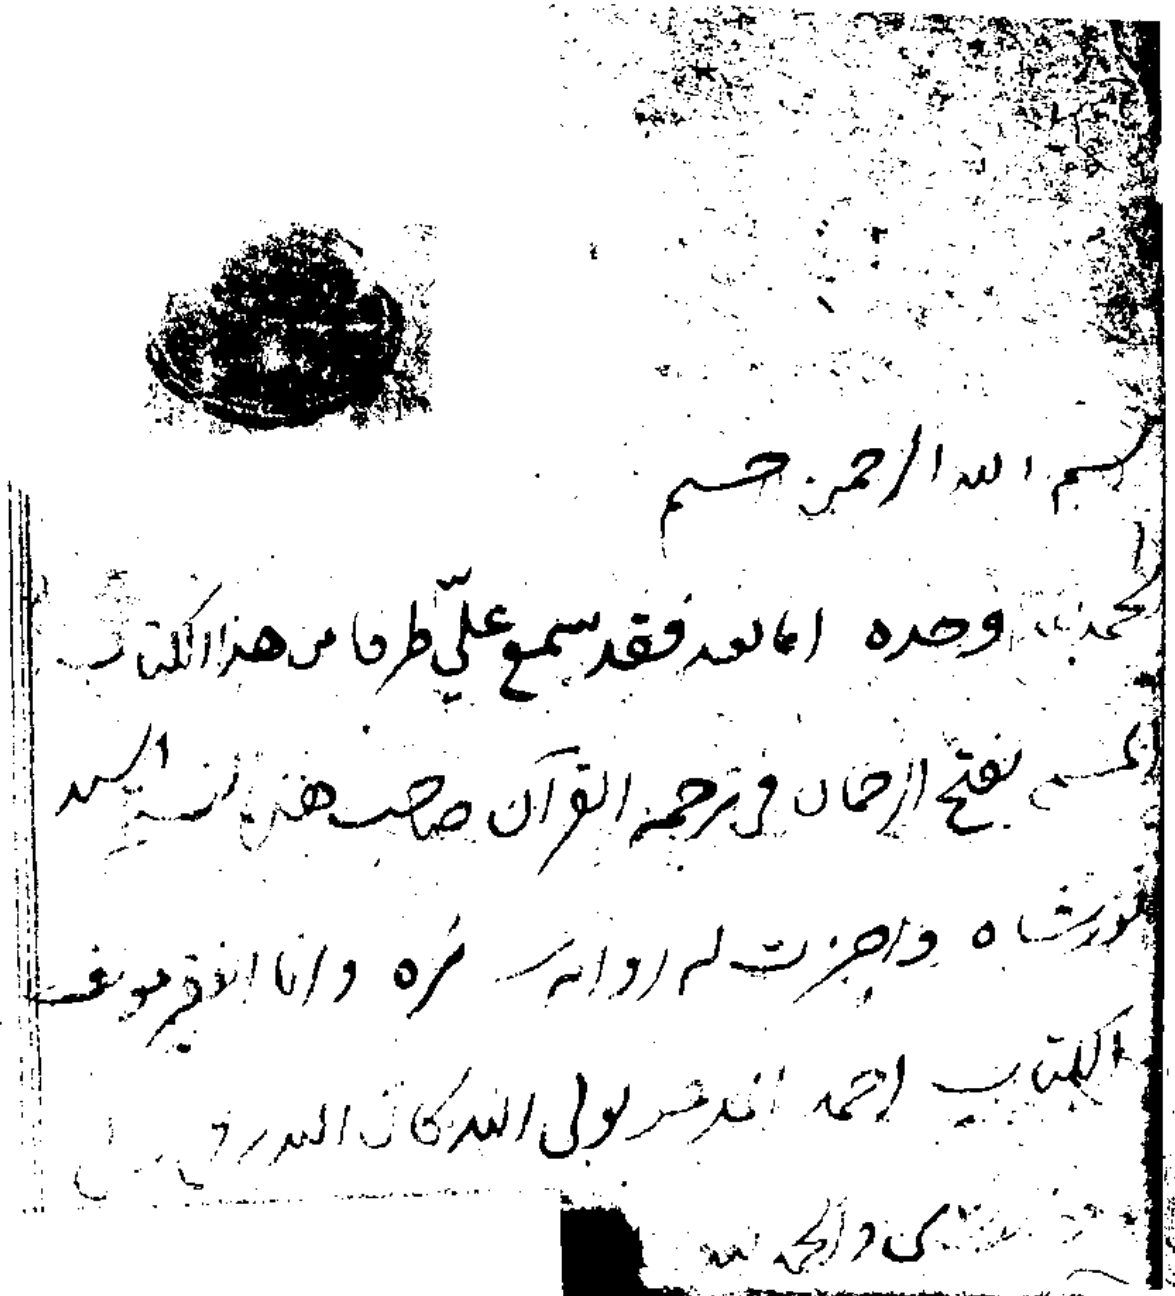 بسم الله الرحمن حسيم
الحمد لله وحده اما بعد فقد سمع علي طرفا من هذا الكتاب
المسمى بفتح الرحمان في ترجمة القرآن صاحب هذه النسخة السيد
نورشاه واجزت له روايته وانا الفقير مؤلف
الكتاب احمد المدعو بولي الله كان الله
والحمد لله